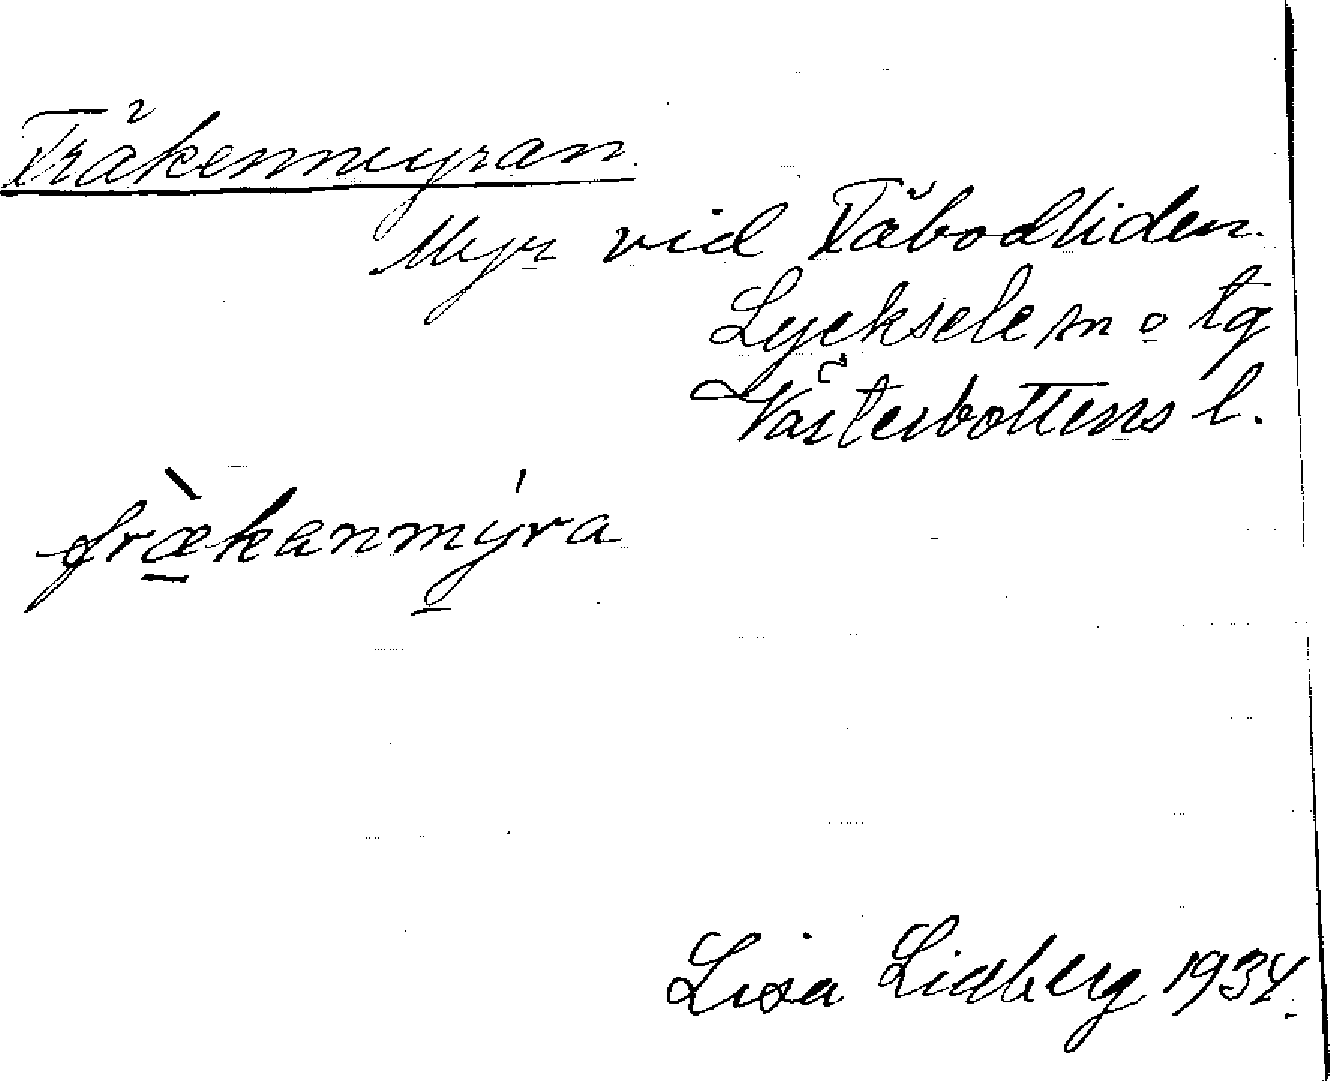 Fräkenmyran.
Myr vid Fäbodliden.
Lycksele sn o tg
Västerbottens l.
fræ̀kanmýra
Lisa Lidberg 1934.